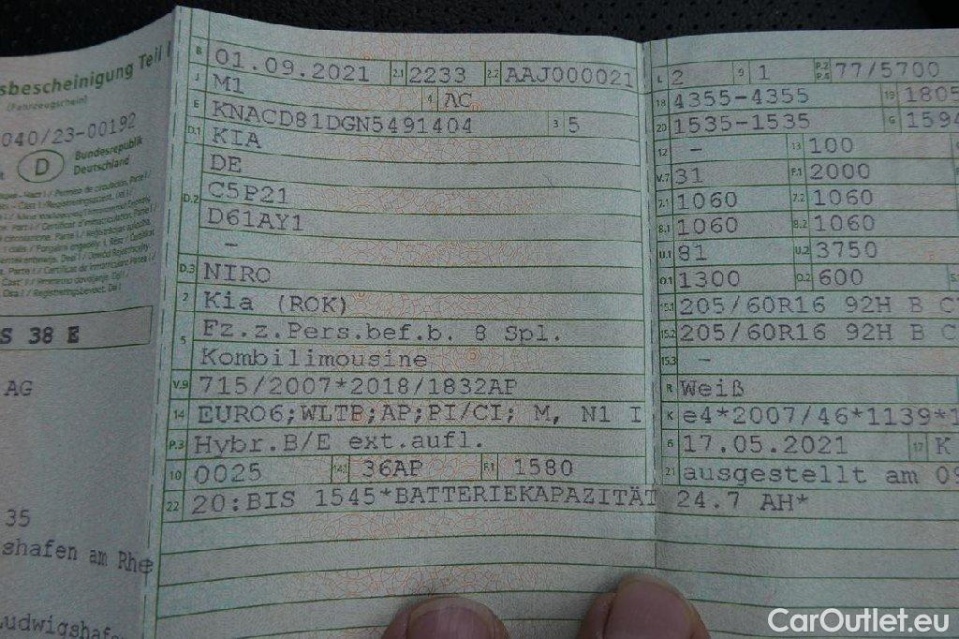 sbescheinigung Teil I
(Fahrzeugschein)
040/23-00192
D
Bundesrepublik
Deutschland
S 38 E
AG
35
shafen am Rhe
udwigshafe
B 01.09.2021 2.1 2233 2.2 AAJ000021
J M1 4 AC
E KNACD81DGN5491404 3 5
D.1 KIA
DE
D.2 C5P21
D61AY1
–
D.3 NIRO
2 Kia (ROK)
Fz.z.Pers.bef.b. 8 Spl.
5 Kombilimousine
V.9 715/2007*2018/1832AP
14 EURO6;WLTP;AP;PI/CI; M, N1 I
P.3 Hybr.B/E ext.aufl.
10 0025 14.1 36AP P.1 1580
22 20:BIS 1545*BATTERIEKAPAZITÄT 24.7 AH*
L 2 9 1 P.2 P.4 77/5700
18 4355-4355 19 1805
20 1535-1535 G 1594
12 – 13 100
V.7 31 F.1 2000
7.1 1060 7.2 1060
8.1 1060 8.2 1060
U.1 81 U.2 3750
O.1 1300 O.2 600
15.1 205/60R16 92H B C
15.2 205/60R16 92H B C
15.3 –
R Weiß
K e4*2007/46*1139*1
6 17.05.2021 17 K
21 ausgestellt am 09
CarOutlet.eu